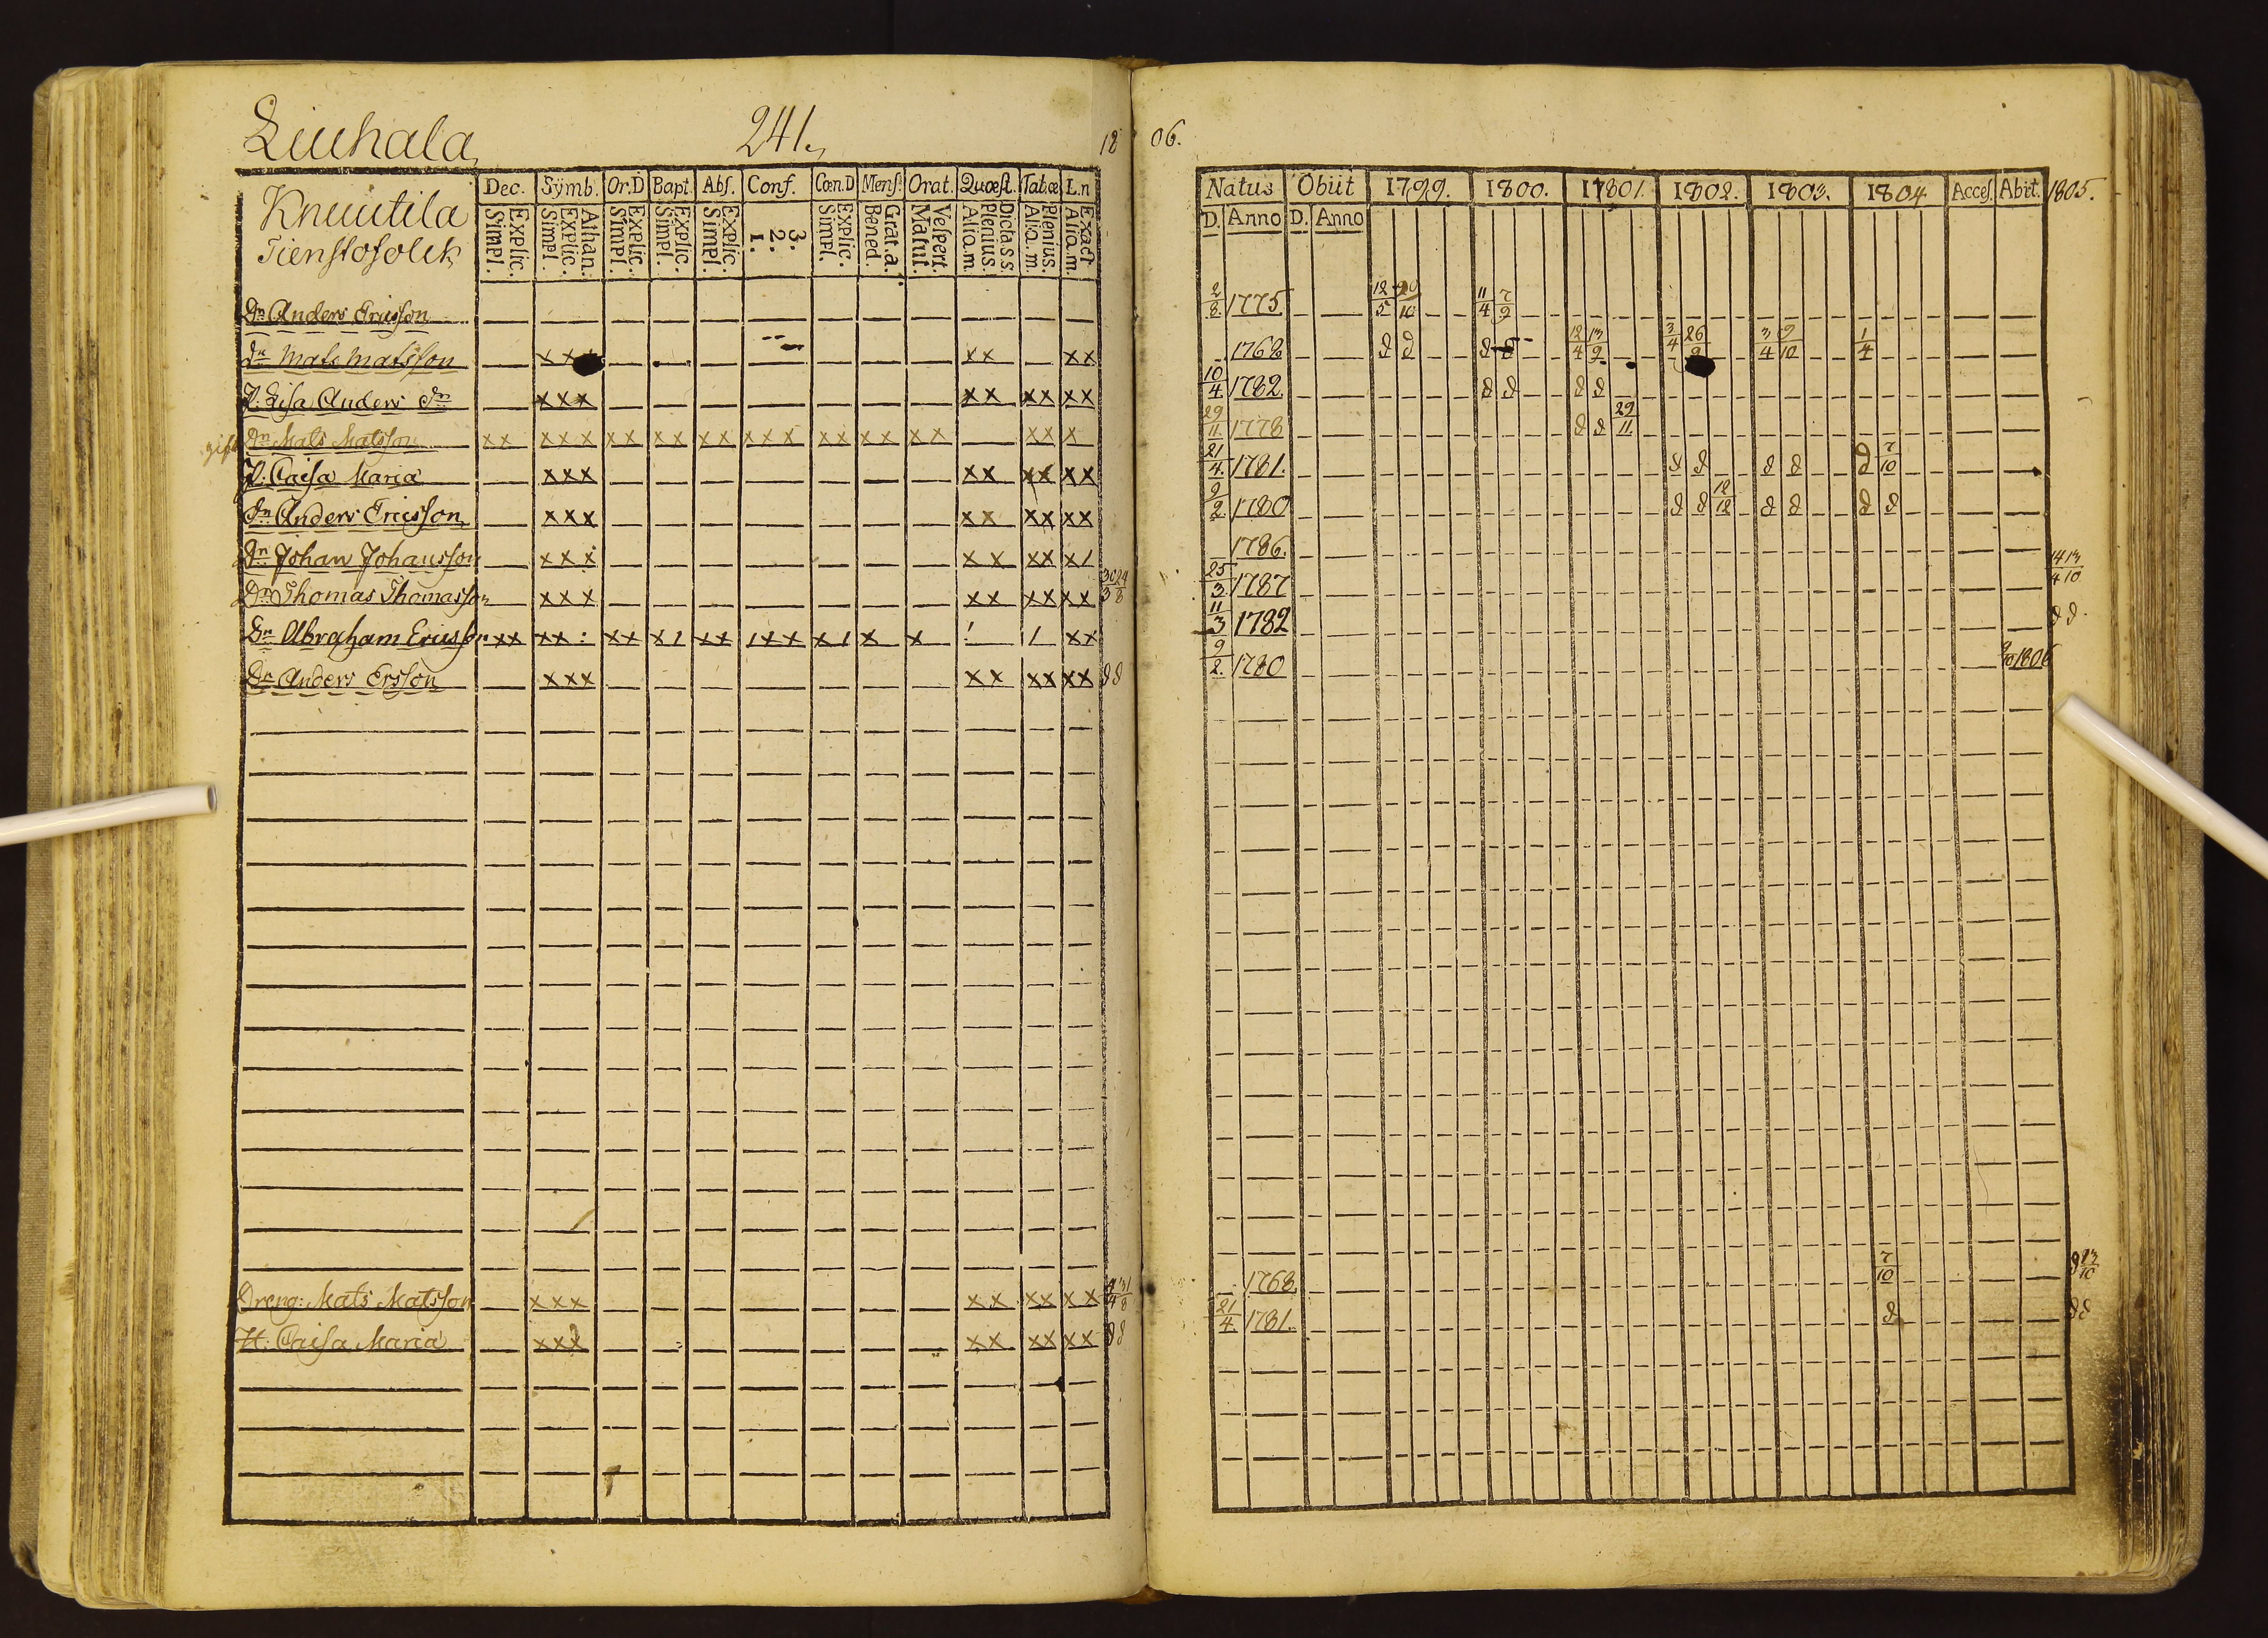 Liuhala 241. 18 06.
Knuutila
Tienstofolck
Dec. Symb. Or.D Bapt. Abs. Conf. Cœn.D Mens. Orat. Quæst. Tab.œ L.n
Explic. Simpl. Athan. Explic. Simpl. Explic. Simpl. Explic. Simpl. Explic. Simpl. 3. 2. 1. Explic. Simpl. Grat.a. Bened. Vespert. Matut. Dicta s s. Plenius. Aliq.m. Plenius. Aliq.m. Exact Aliq.m.
Natus Obiit 1799. 1800. 1801. 1802. 1803. 1804 Acces. Abiit. 1805.
D. Anno D. Anno
Dn Anders Ericsson 2/8 1775 12/5 20/10 11/4 7/9
Dn Mats Matsson xx xx xx 1768 d d d d 12/4 13/9 3/4 26/9 3/4 9/10 1/4
P. Lisa Anders dr xxx xx xx xx 10/4 1782 d d d d
gift Dn Mats Matsson xx xxx xx xx xx xxx xx xx xx xx x 29/11 1778 d d 29/11
P. Caisa Maria xxx xx xx xx 21/4 1781. d d d d d 7/10
Dn Anders Ericsson xxx xx xx xx 9/2 1780 d d 12/12 d d d d
Dn Johan Johansson xxx xx xx x/ 1786.
Dn Thomas Thomasson xxx xx xx xx 25/3 1787 14/4 13/10
Dn Abraham Ericsson xx xx: xx x/ xx /xx x/ x x / / xx 11/3 1782 d d
Dn Anders Ersson xxx xx xx xx d d 9/2 1780 1806
Dreng: Mats Matsson xxx xx xx xx 1768. 7/10 d 13/10
H. Caisa Maria xxx xx xx xx d d 21/4 1781. d d d